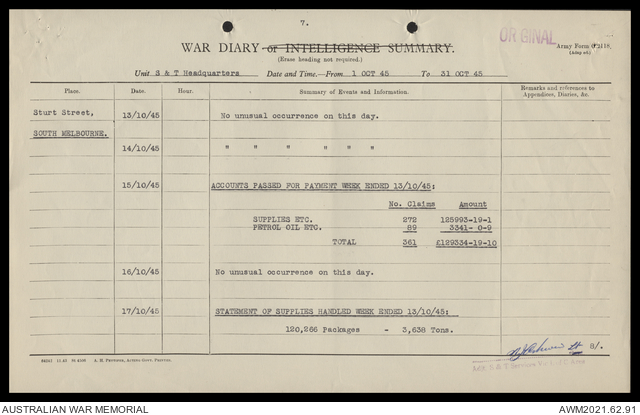 7.
ORIGINAL
WAR DIARY or INTELLIGENCE SUMMARY.
(Erase heading not required.)
Army Form C2118.
(Adap ed)
Unit S & T Headquarters Date and Time.—From 1 OCT 45 To 31 OCT 45
Place. Date. Hour. Summary of Events and Information. Remarks and references to Appendices, Diaries, &c.
Sturt Street, 13/10/45 No unusual occurrence on this day.
SOUTH MELBOURNE.
14/10/45 " " " " " "
15/10/45 ACCOUNTS PASSED FOR PAYMENT WEEK ENDED 13/10/45:
No. Claims Amount
SUPPLIES ETC. 272 125993-19-1
PETROL OIL ETC. 89 3341- 0-9
TOTAL 361 £129334-19-10
16/10/45 No unusual occurrence on this day.
17/10/45 STATEMENT OF SUPPLIES HANDLED WEEK ENDED 13/10/45:
120,266 Packages - 3,638 Tons.
Lt 8/.
S & T Services
A. H. Pettifer, Acting Govt. Printer.
AUSTRALIAN WAR MEMORIAL AWM2021.62.91